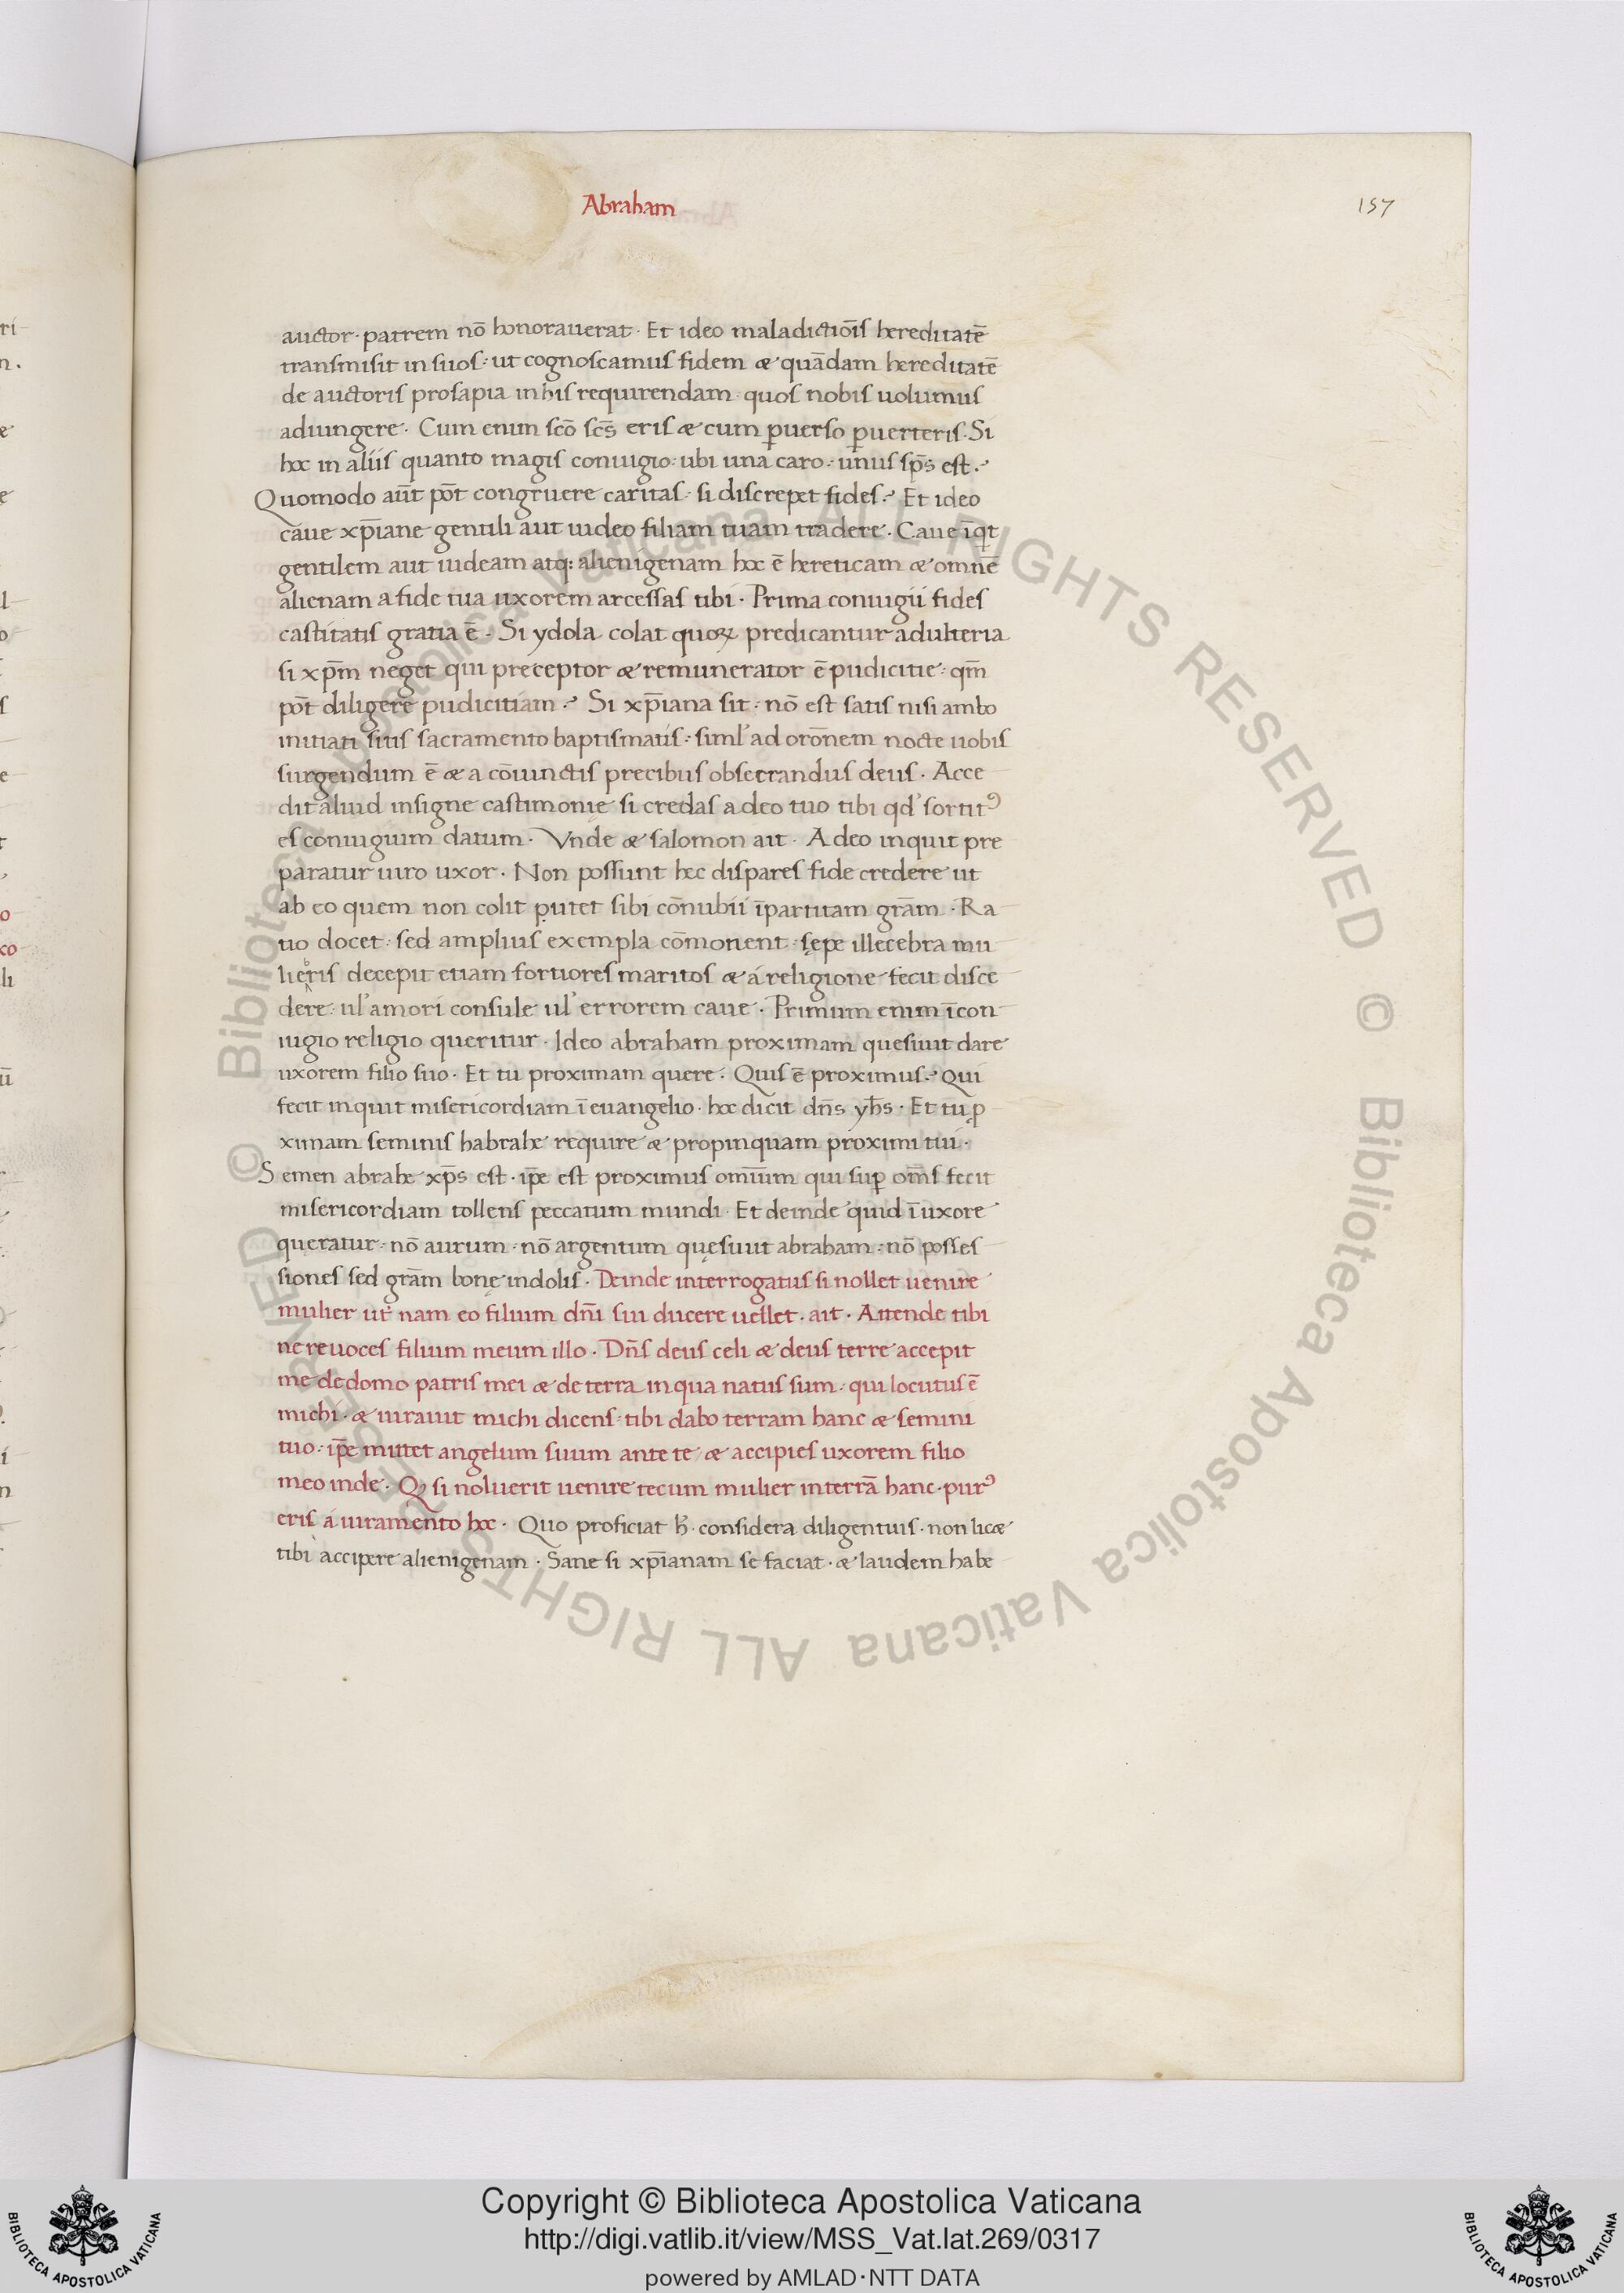 Abraham
157
auctor · patrem nō honorauerat · Et ideo maladictiōis hereditatē
transmisit in suos : ut cognoscamus fidem & quādam hereditatē
de auctoris prosapia in his requirendam · quos nobis uolumus
adiungere · Cum enim scō scs̄ eris & cum ꝑuerso ꝑuerteris · Si
hoc in aliis quanto magis coniugio : ubi una caro : unus sps̄ est ·
Quomodo aūt pōt congruere caritas : si discrepet fides · Et ideo
caue xp̄iane gentili aut iudeo filiam tuam tradere · Caue īqt
gentilem aut iudeam atq; alienigenam hoc ē hereticam & omnē
alienam a fide tua uxorem arcessas tibi · Prima coniugii fides
castitatis gratia ē · Si ydola colat quoꝝ predicantur adulteria
si xp̄m neget qui preceptor & remunerator ē pudicitie : qm̄
pōt diligere pudicitiam · Si xp̄iana sit : nō est satis nisi ambo
initiati sitis sacramento baptismatis : siml' ad orōnem nocte uobis
surgendum ē & a cōiunctis precibus obsecrandus deus · Acce
dit aliud insigne castimonie si credas a deo tuo tibi qd' sortitꝰ
es coniugium datum · Vnde & salomon ait · A deo inquit pre
paratur uiro uxor · Non possunt hec dispares fide credere ut
ab eo quem non colit putet sibi cōnubii īpartitam grām · Ra
tio docet : sed amplius exempla cōmonent : sępe illecebra mu
lieris decepit etiam fortiores maritos & á religione fecit disce
dere : ul' amori consule ul' errorem caue · Primum enim ī con
iugio religio queritur · Ideo abraham proximam quesiuit dare
uxorem filio suo · Et tu proximam quere · Quis ē proximus · Qui
fecit inquit misericordiam ī euangelio · hoc dicit dn̄s yhs̄ · Et tu ꝓ
ximam seminis habrahe require & propinquam proximi tui ·
Semen abrahe xp̄s est · ip̄e est proximus omīum qui suꝑ om̄s fecit
misericordiam tollens peccatum mundi · Et deinde quid ī uxore
queratur : nō aurum : nō argentum quęsiuit abraham : nō posses
siones sed grām bonę indolis · Deinde interrogatus si nollet uenire
mulier utrnam eo filium dn̄i sui ducere uellet · ait · Attende tibi
ne reuoces filium meum illo · Dn̄s deus celi & deus terre accepit
me de domo patris mei & de terra in qua natus sum : qui locutus ē
michi · & iurauit michi dicens : tibi dabo terram hanc & semini
tuo : ip̄e mittet angelum suum ante te & accipies uxorem filio
meo inde · Qꝫ si noluerit uenire tecum mulier in terrā hanc · purꝰ
eris á iuramento hoc · Quo proficiat h̄ · considera diligentius · non lic&
tibi accipere alienigenam · Sane si xp̄ianam se faciat · & laudem habe
© Biblioteca Apostolica Vaticana ALL RIGHTS RESERVED © Biblioteca Apostolica Vaticana ALL RIGHTS RESERVED
Copyright © Biblioteca Apostolica Vaticana
http://digi.vatlib.it/view/MSS_Vat.lat.269/0317
powered by AMLAD·NTT DATA
BIBLIOTECA APOSTOLICA VATICANA
BIBLIOTECA APOSTOLICA VATICANA